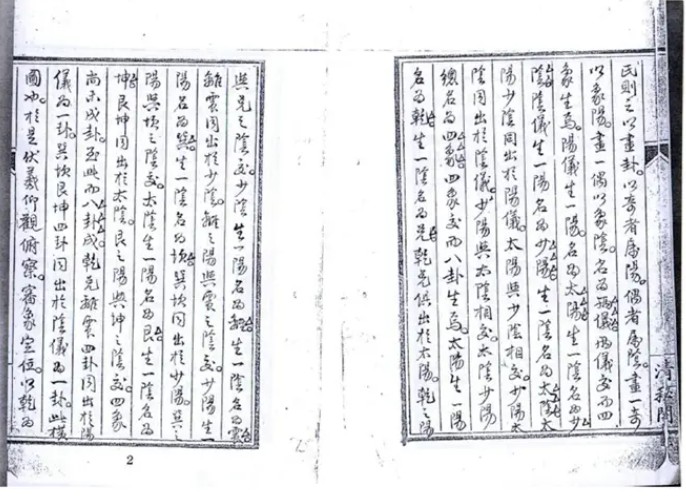 氏則之以畫卦。以奇者爲陽。偶者爲陰。畫一奇
以象陽。畫一偶以象陰。名爲兩儀。兩儀交而四
象生焉。陽儀生一陽名爲太陽。生一陰名爲少
陰。陰儀生一陽名爲少陽。生一陰名爲太陰。太
陽少陰同出於陽儀。太陽與少陰相交。少陽太
陰同出於陰儀。少陽與太陰相交。太陰少陽
總名爲四象。四象交而八卦生焉。太陽生一陽
名爲乾。生一陰名爲兌。乾兌俱出於太陽。乾之陽
與兌之陰交。少陰生一陽名爲離。生一陰名爲震
離震同出於少陰。離之陽與震之陰交。少陽生一
陽名爲巽。生一陰名爲坎。巽坎同出於少陽。巽之
陽與坎之陰交。太陰生一陽名爲艮。生一陰名爲
坤。艮坤同出於太陰。艮之陽與坤之陰交。四象
尚未成卦。至此而八卦成。乾兌離震四卦同出於陽
儀爲一卦。巽坎艮坤四卦同出於陰儀爲一卦。此橫
圖也。於是伏羲仰觀俯察。審象定位。以乾爲
2